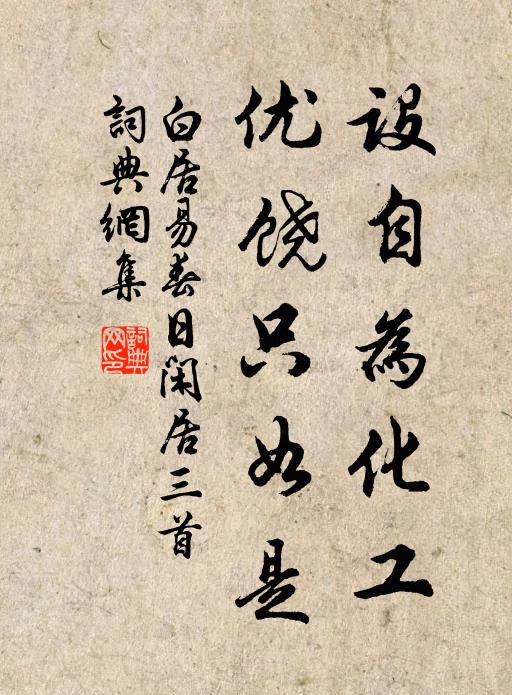 設自為化工
优饶只如是
白居易春日閑居三首
詞典網集
詞典網印